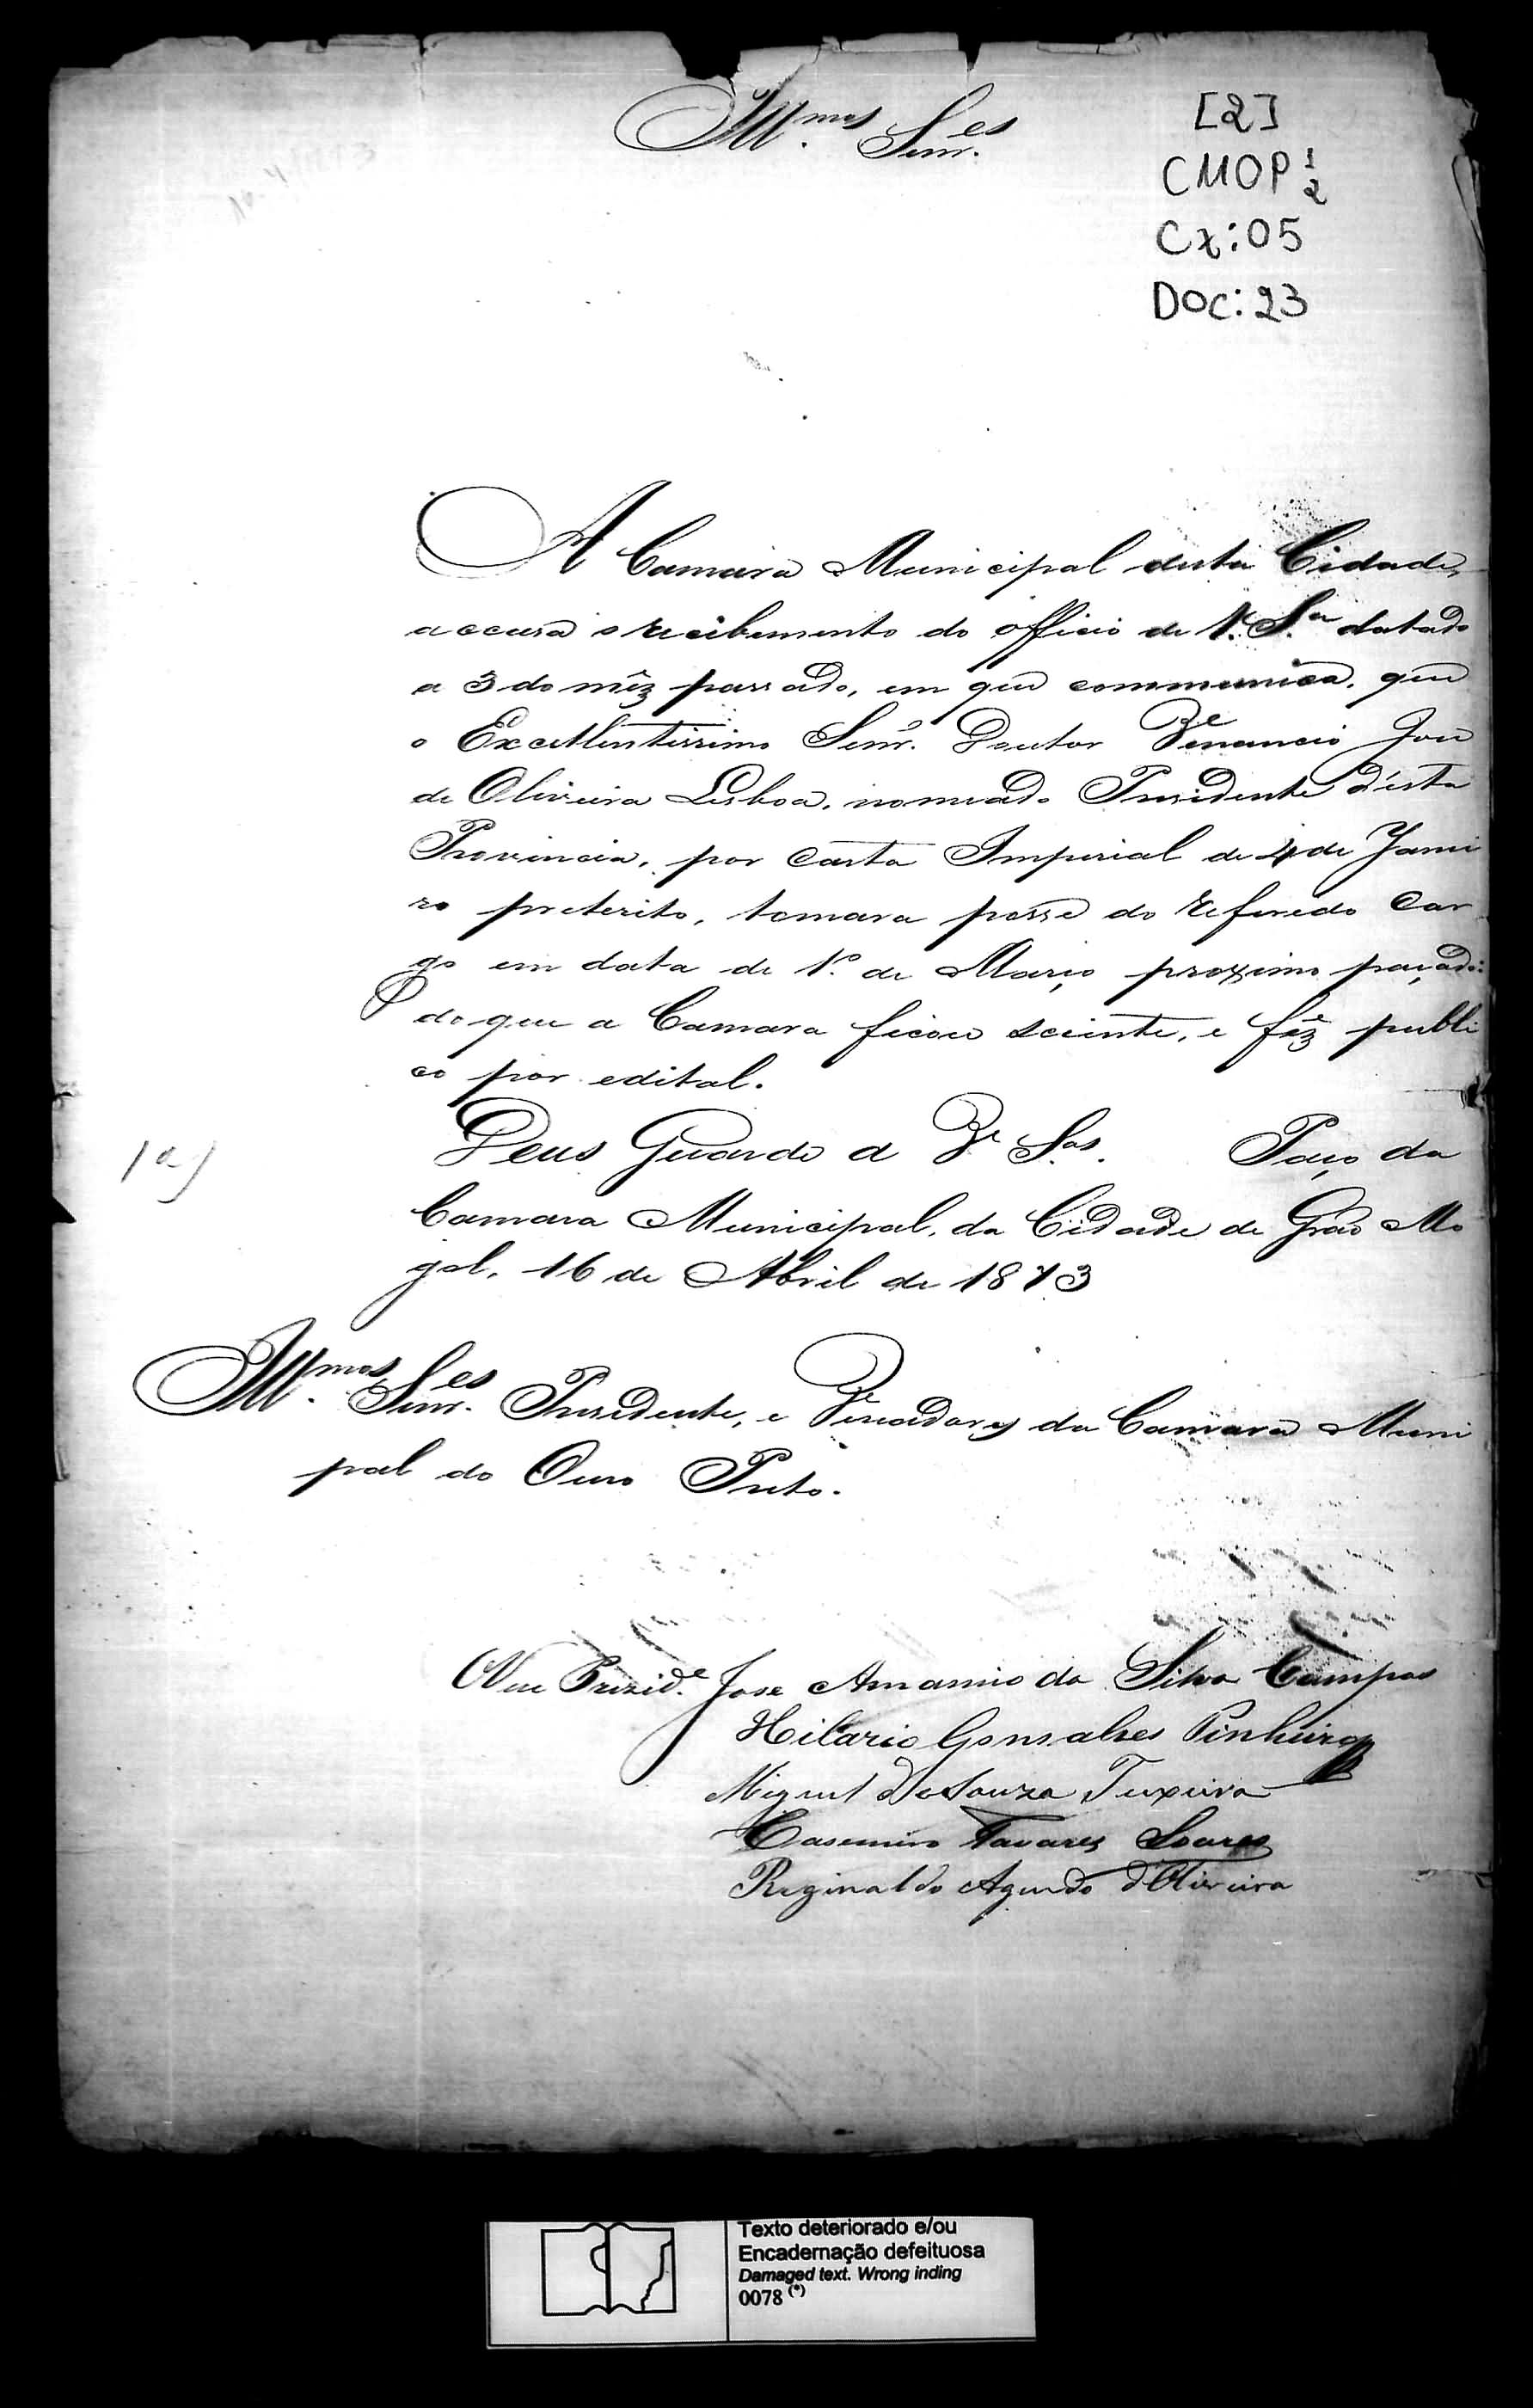 Illmos. Senres.
[2]
CMOP 1/2
Cx: 05
DOC: 23
A Camara Municipal desta Cidade,
accusa o recibemento do officio de V. Sa. datado
a 3 do mêz passado, em que communica, que
o Excellentissimo Senr. Doutor Venancio José
de Oliveira Lisboa, nomeado Presidente d'esta
Provincia, por Carta Imperial de 4 de Janei
ro preterito, tomara posse do referedo Car
go em data de 1º de Março proximo paçado:
do que a Camara ficou sciente, e fêz publi
co por edital.
Deus Guarde a V. Sas. Paço da
Camara Municipal, da Cidade de Grão Mo
gol, 16 de Abril de 1873
1a)
Illmos. Senres. Presidente, e Vereadores da Camara Muni
pal do Ouro Preto.
Prezide. Jose Amancio da Silva Campos
Hilario Gonsalves Pinheiro
Miguel de Souza Teixeira
Casemiro Tavares Soares
Reginaldo Aguedo d'Oliveira
Texto deteriorado e/ou
Encadernação defeituosa
Damaged text. Wrong inding
0078 (*)